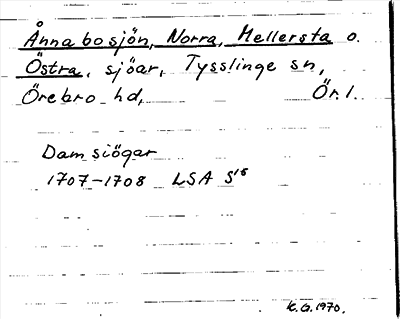 Ånnabosjön, Norra, Mellersta o.
Östra, sjöar, Tysslinge sn,
Örebro hd, Ör. l.
Damsiögar
1707-1708 LSA S¹⁵
K.G. 1970.